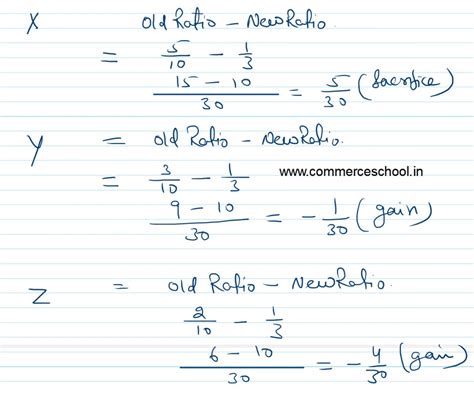 X Old Ratio - New Ratio
= 5/10 - 1/3
15 - 10 / 30 = 5/30 (Sacrifice)
Y = Old Ratio - New Ratio
= 3/10 - 1/3
www.commerceschool.in
9 - 10 / 30 = - 1/30 (gain)
Z = Old Ratio - New Ratio
2/10 - 1/3
6 - 10 / 30 = - 4/30 (gain)